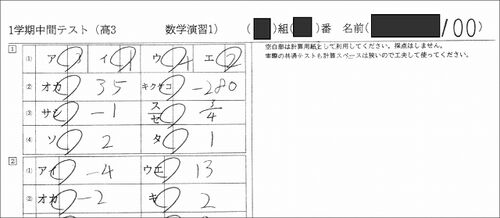 1学期中間テスト(高3 数学演習1) ( )組( )番 名前( )/00)
空白部は計算用紙として利用してください。採点はしません。
実際の共通テストも計算スペースは狭いので工夫して使ってください。
1 ① ア 3 イ 1 ウ 4 エ 2
② オカ 35 キクケコ -280
③ サシ -1 ス/セ 3/4
④ ソ 2 タ 1
2 ① アイ -4 ウエ 13
② オカ -2 キ 2